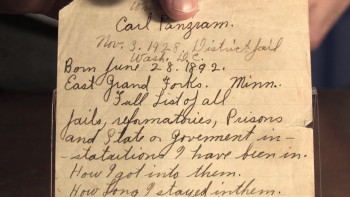 Carl Panzram.
Nov. 3. 1928. District Jail
Wash. D.C.
Born June 28. 1892.
East Grand Forks. Minn.
Full List of all
Jails, reformatories, Prisons
and State or Goverment in-
statutions I have been in.
How I got into them.
How long I stayed in them.